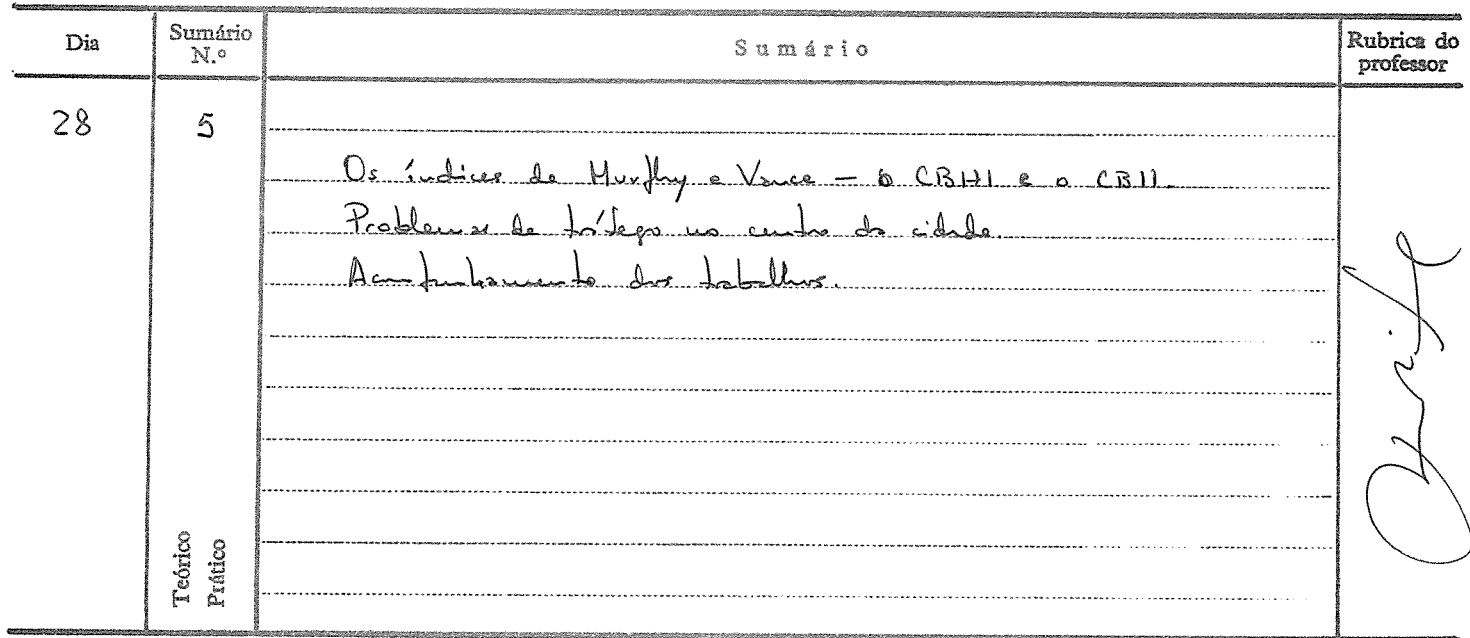 Dia
Sumário N.º
Sumário
Rubrica do professor
28
5
Os índices de Murphy e Vance — o CBHI e o CBII.
Problemas de tráfego no centro da cidade.
Acompanhamento dos trabalhos.
Teórico
Prático